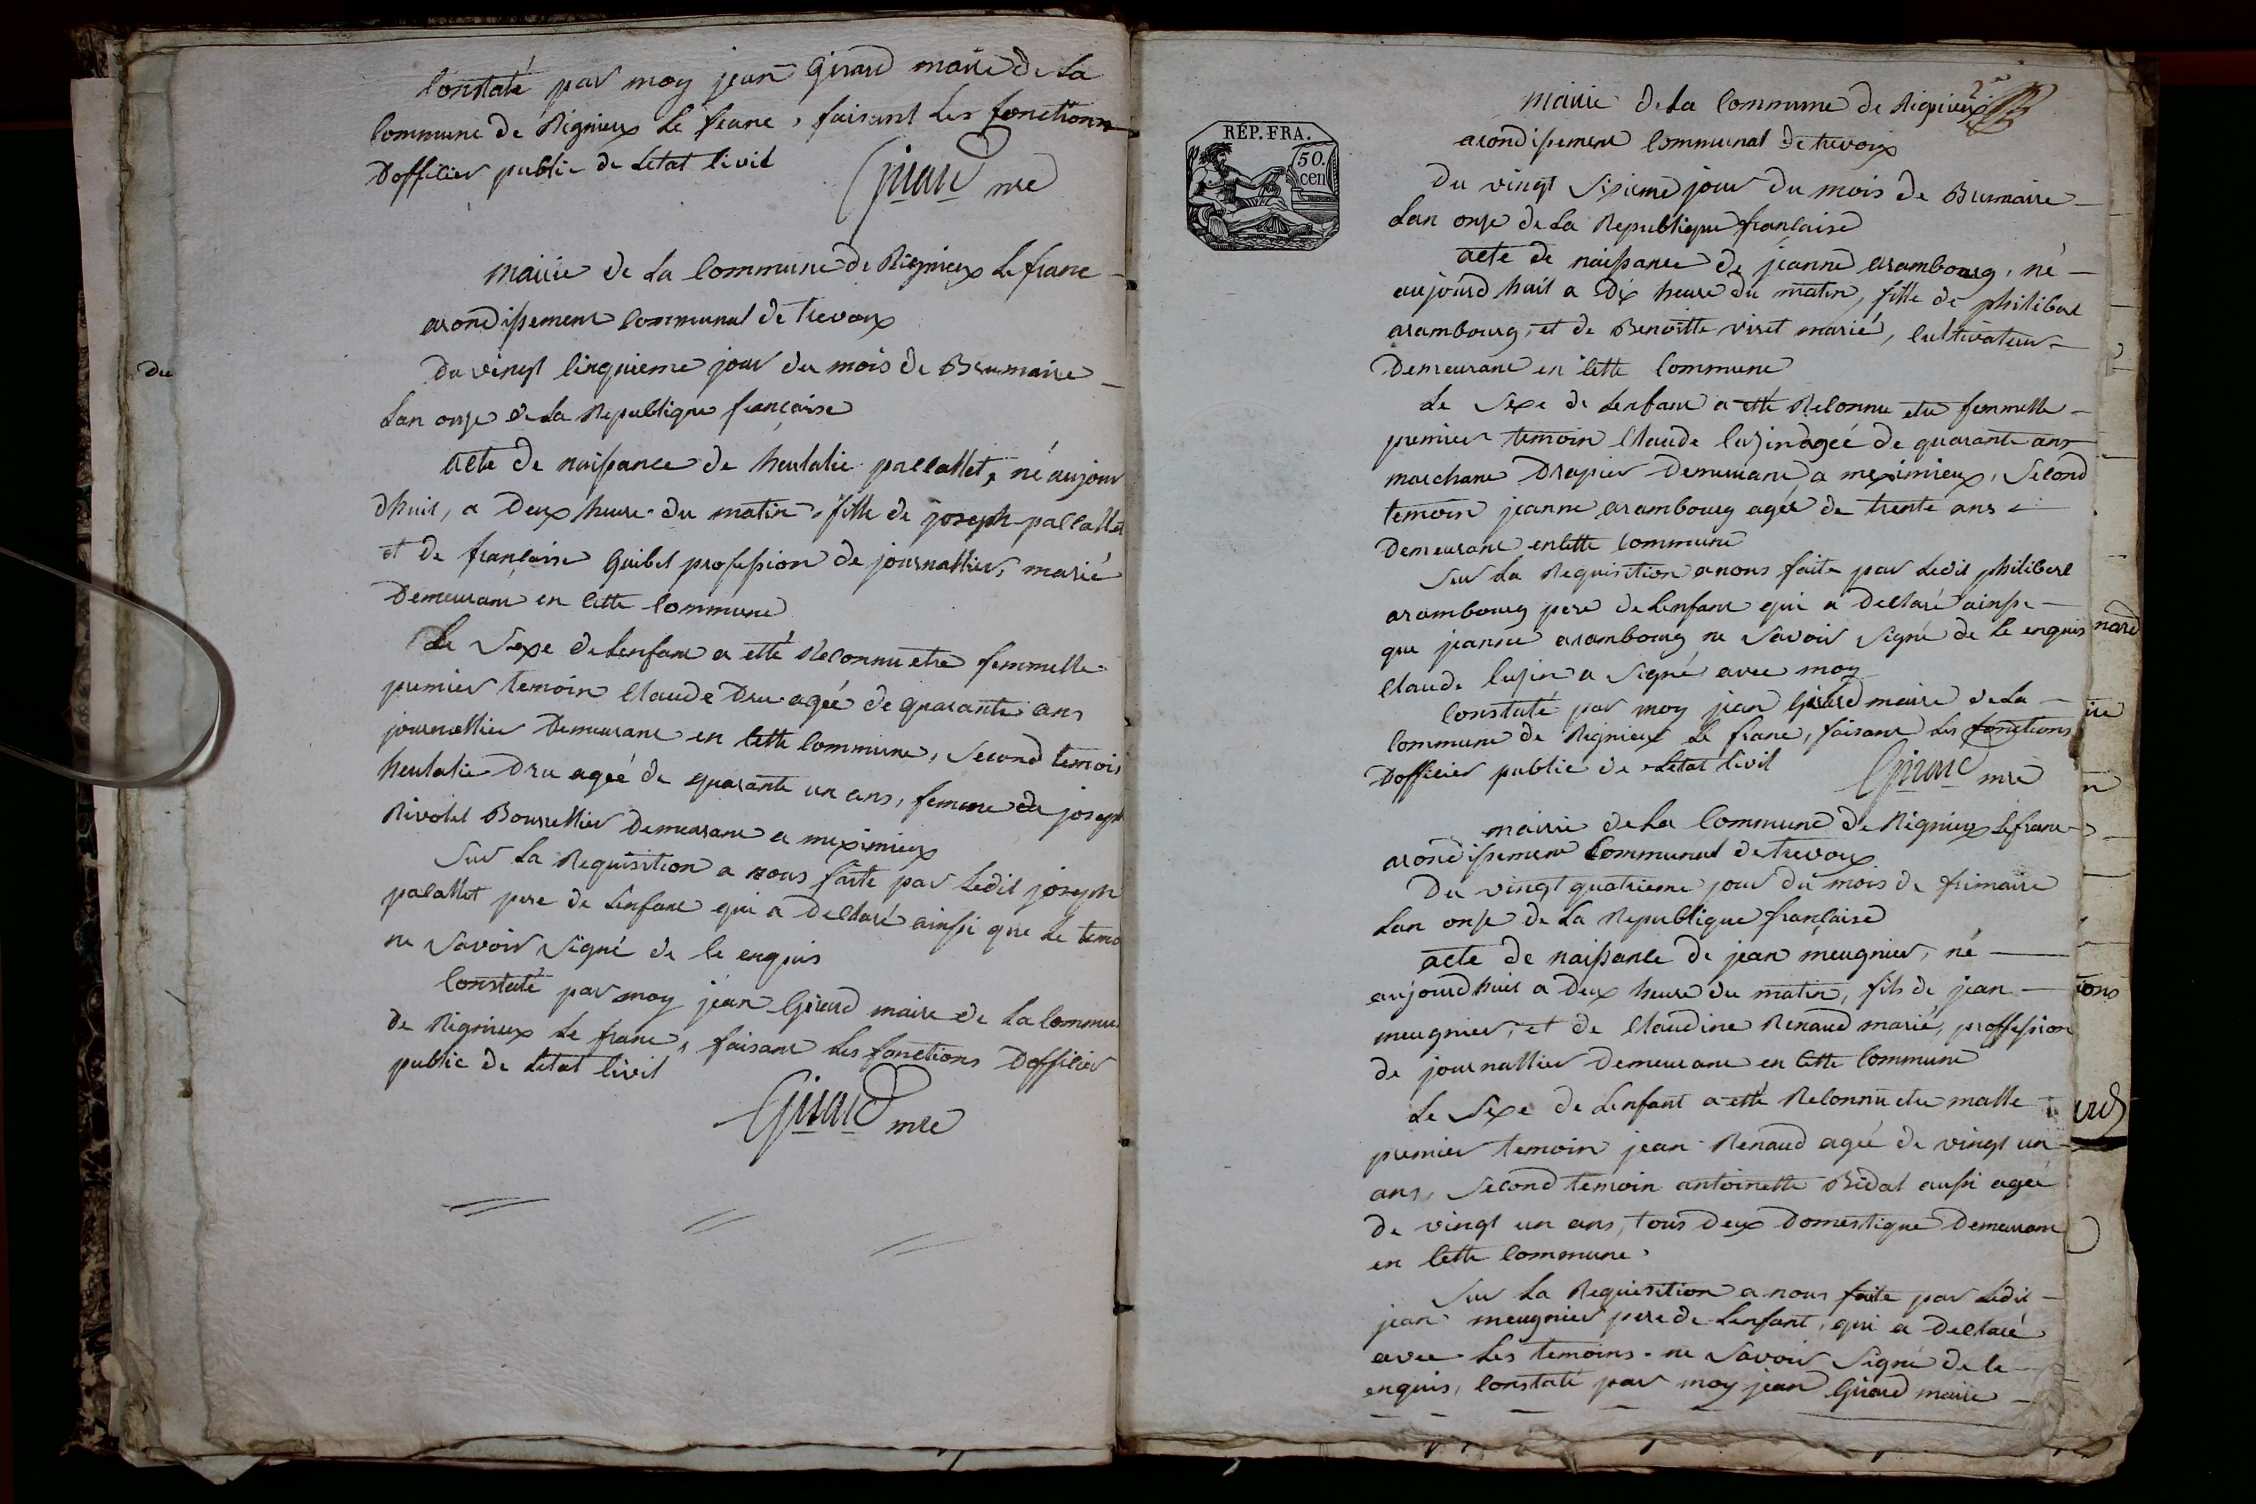 Constaté par moy jean Girard maire de La
Commune de Rignieux Le franc, faisant Les fonctions
Dofficier public de Letat Civil
Girard mre
Mairie de La Commune de Rignieux Le franc
arondissement Communal de trevoux
Du vingt Cinquieme jour du mois de Brumaire
Lan onze de La Republique française
acte de naissance de heulalie pallallet, né aujour
dhuit, a Deux heure du matin, fille de joseph pallallet
et de françoise Guibet profession de journallier, marié
Demeurant en Cette Commune
Le Sexe de Lenfant a etté Reconnu etre femmelle
premier temoin Claude Dru agée de quarante ans
journallier Demeurant en Cette Commune, Second temoin
heulalie Dru agée de quarante un ans, femme de joseph
Rivolet Bourrellier Demeurant a meximieux
Sur La Requisition a nous faite par Ledit joseph
palallet pere de Lenfant qui a Declaré ainssi que Le temo
ne Savoir Signé de Ce enquis
Constaté par moy jean Girard maire de La Commu
de Rignieux Le franc, faisant Les fonctions Dofficier
public de Letat Civil
Girard mre
du
2e
Mairie de La Commune de Rignieux
arondissement Communal de trevoux
RÉP. FRA.
50.
cen
Du vingt Sixieme jour du mois de Brumaire
Lan onze de La Republique française
acte de naissance de jeanne arambourg, né
aujourd huit a Dix heure du matin, fille de philibert
arambourg, et de Benoitte viret marié, Cultivateur
Demeurant en Cette Commune
Le Sexe de Lenfant a etté Reconnu etre femmelle
premier temoin Claude Luzin agée de quarante ans
marchant Drapier Demeurant a meximieux, Second
temoin jeanne arambourg agée de trente ans
Demeurant en Cette Commune
Sur La Requisition a nous faite par Ledit philibert
arambourg pere de Lenfant qui a Declaré ainsi
que jeanne arambourg ne Savoir Signé de Ce enquis
Claude Luzin a Signé avec moy
Constaté par moy jean Girard maire de La
Commune de Rignieux Le franc, faisant Les fonctions
Dofficier public de Letat Civil
Girard mre
mairie de La Commune de Rignieux Le franc
arondissement Communal de trevoux
Du vingt quatrieme jour du mois de frimaire
Lan onze de La Republique française
acte de naissance de jean meugnier, né
aujourdhuit a Deux heure du matin, fils de jean
meugnier, et de Claudine Renaud marié, proffession
de journallier Demeurant en Cette Commune
Le Sexe de Lenfant a etté Reconnu etre malle
premier temoin jean Renaud agée de vingt un
ans, Second temoin antoinette Bidal aussi agée
de vingt un ans, tous Deux Domestique Demeurant
en Cette Commune.
Sur La Requisition a nous faite par Ledit
jean meugnier pere de Lenfant, qui a Declaré
avec Les temoins ne Savoir Signé de Ce
enquis, Constaté par moy jean Girard maire